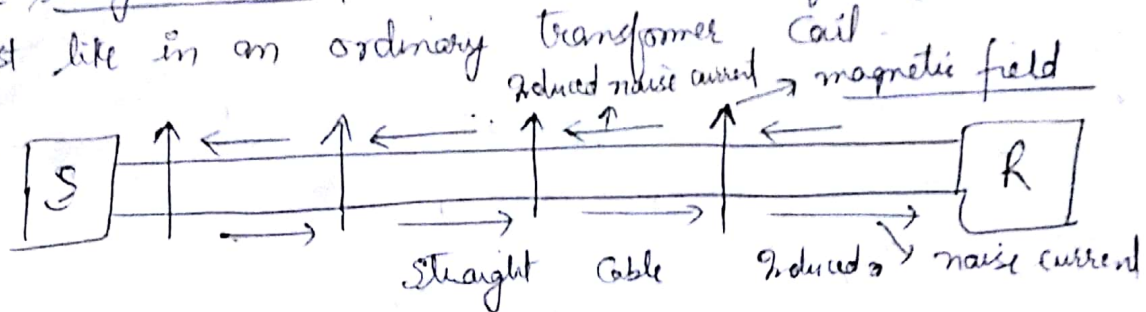 st like in an ordinary transformer Cail
Induced noise current → magnetic field
S
R
Straight Cable Induced noise current